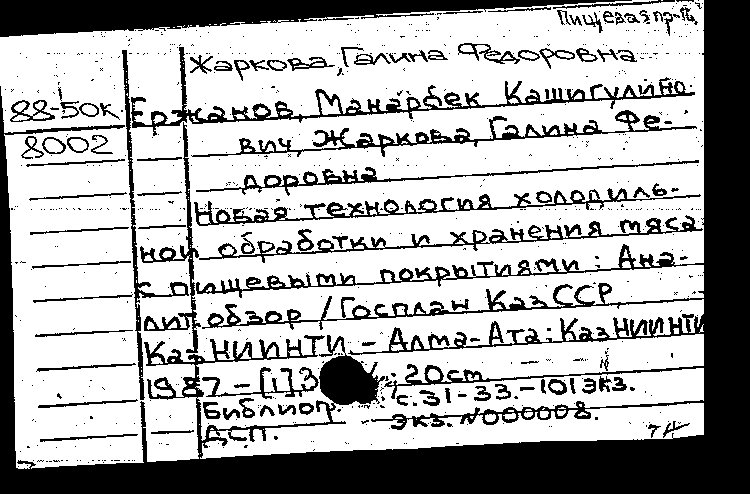 Пищевая пр-ть
Жаркова, Галина Федоровна
88-50к Ержанов, Манарбек Кашигулино
8002 вич, Жаркова, Галина Фе-
доровна
Новая технология холодиль-
ной обработки и хранения мяса
с пищевыми покрытиями : Ана-
лит. обзор / Госплан КазССР,
КазНИИНТИ. - Алма-Ата : КазНИИНТИ
1987. - [1], 3 ; 20 см
Библиогр. с. 31-33. - 101 экз.
ДСП. Экз. N000008.